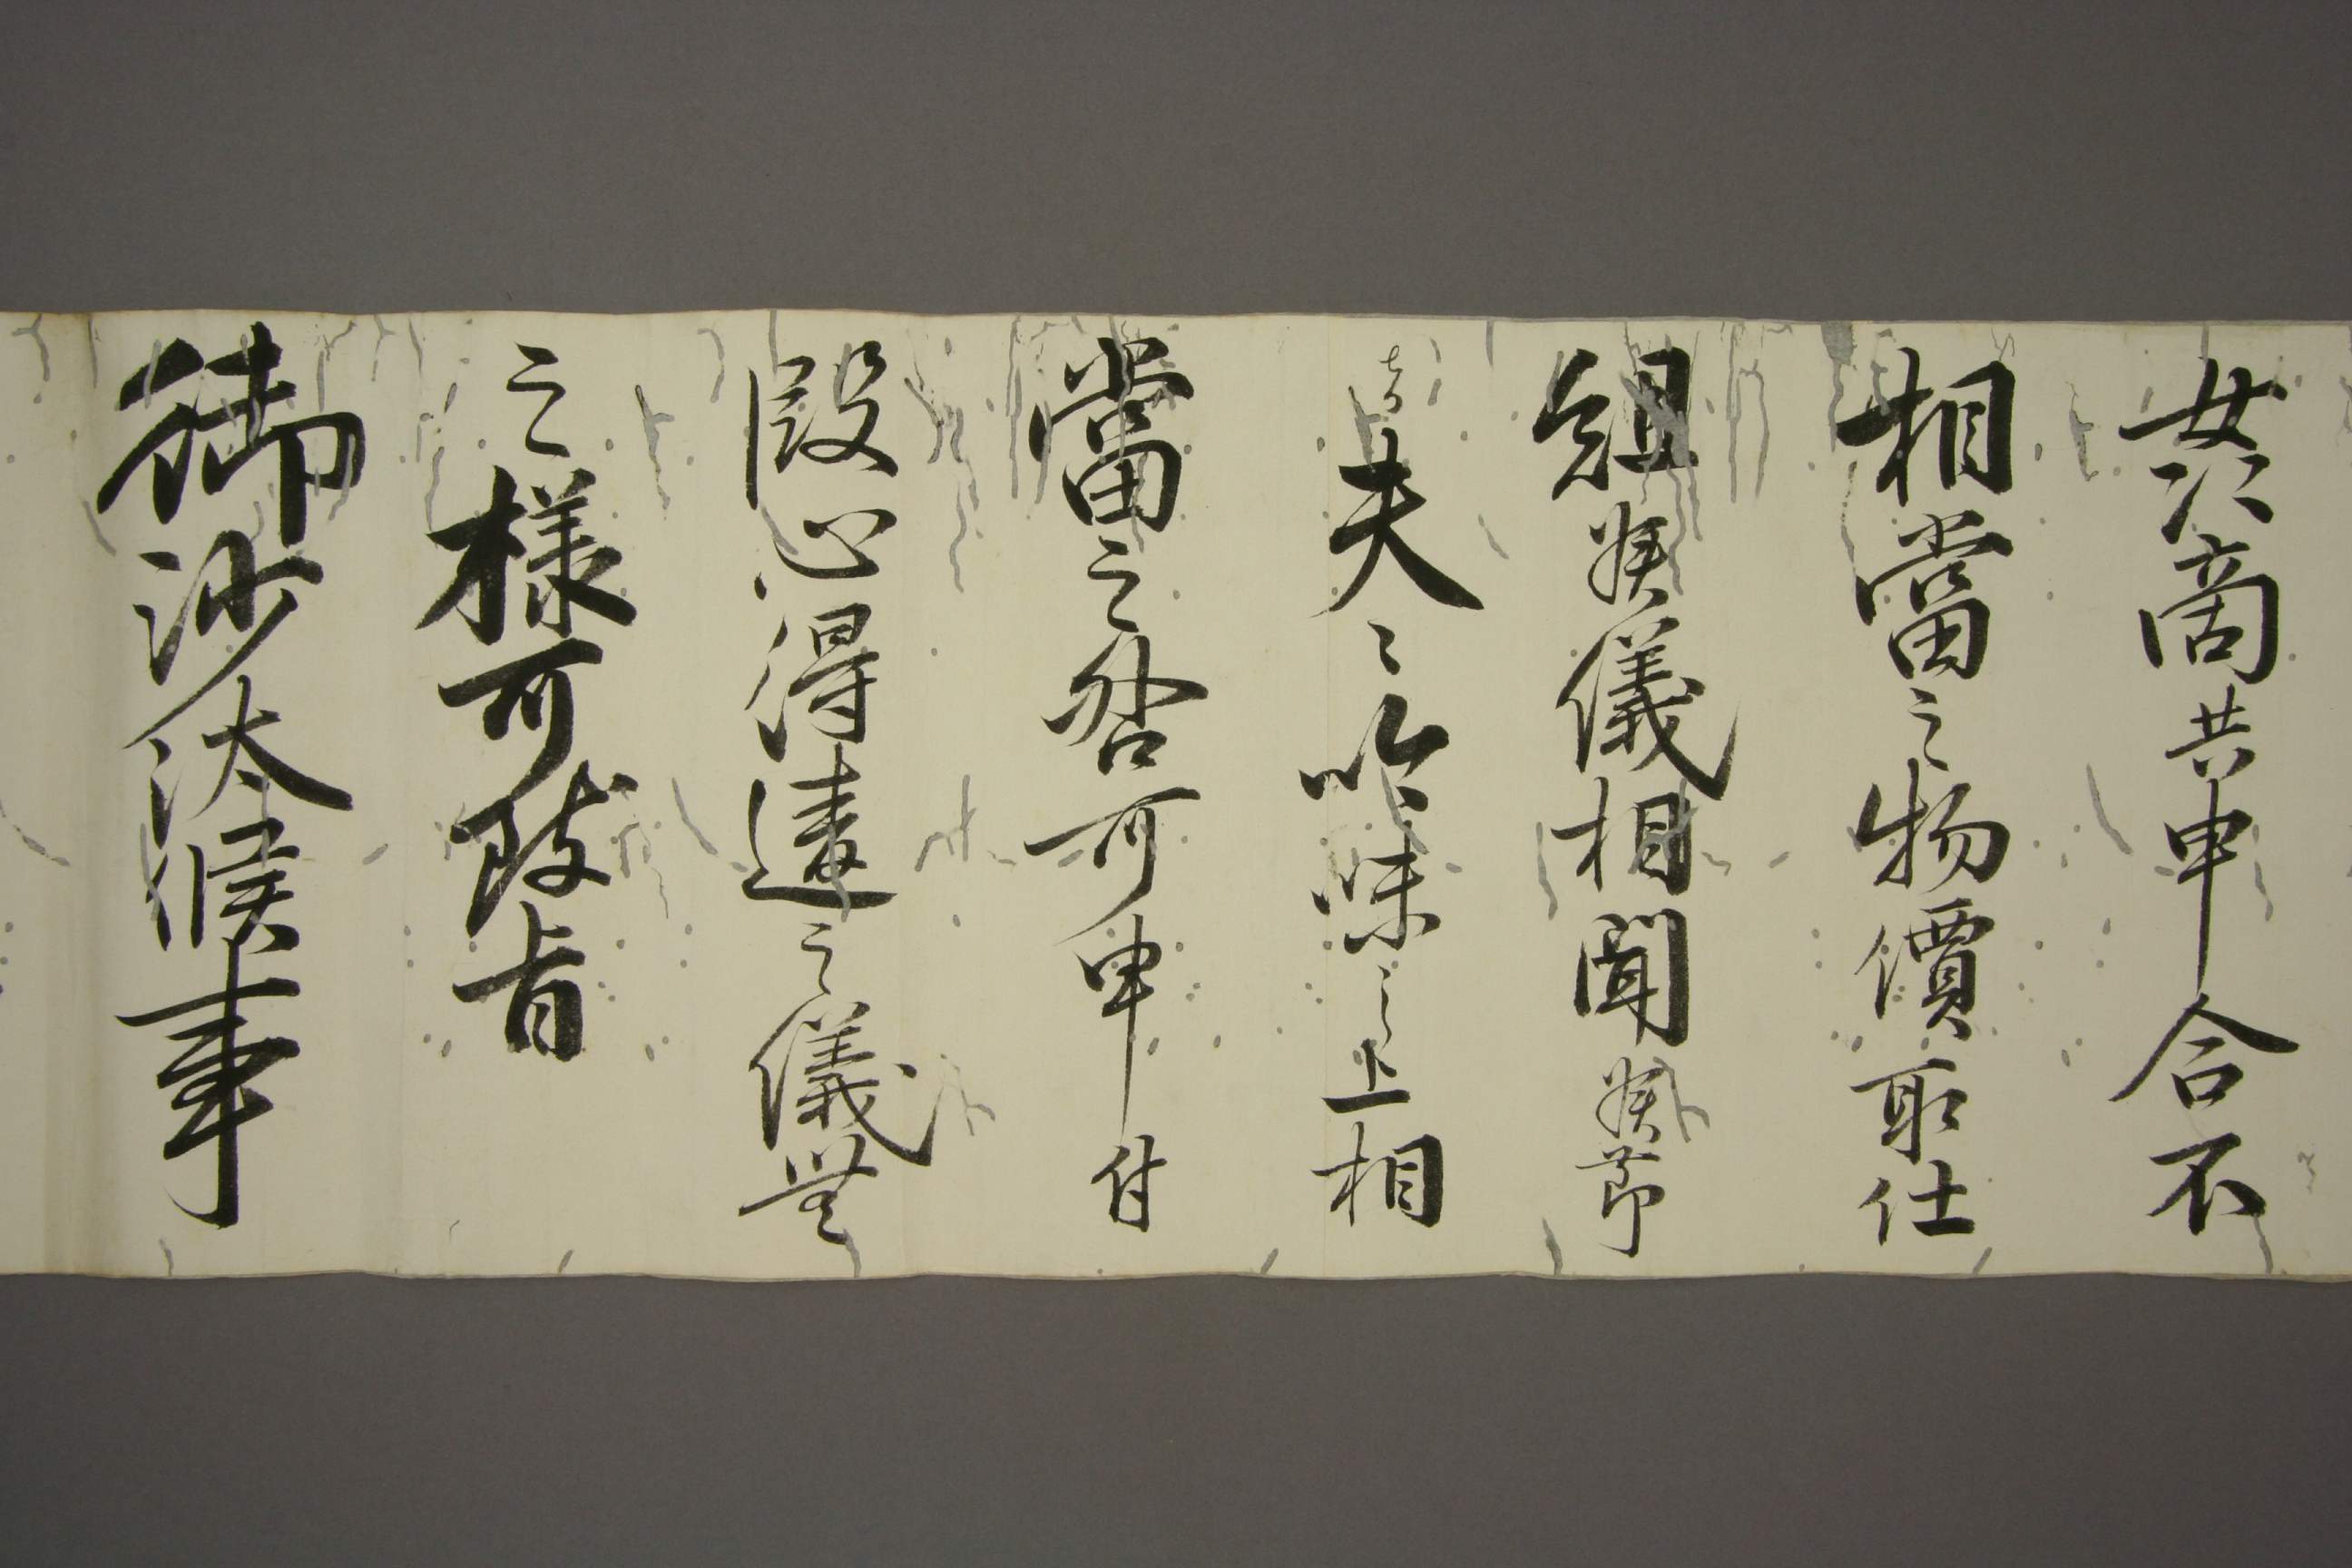 女以商共申合不
相當之物價取仕
組候儀相聞候節
者夫々吟味之上相
當之咎可申付
段心得違之儀無
之様可致旨
御沙汰候事